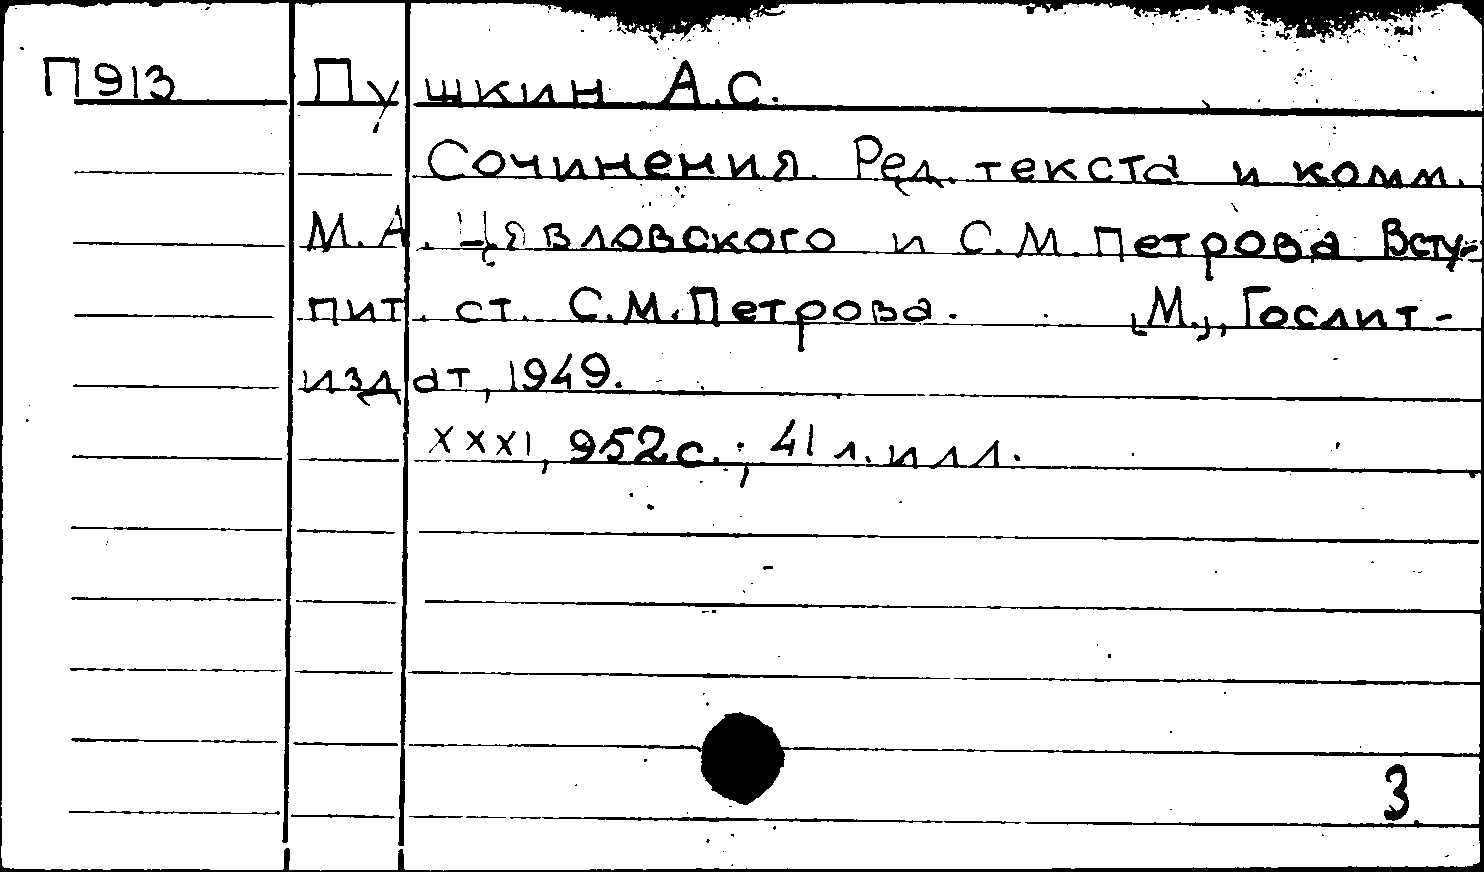 П913 Пушкин А.С.
Сочинения. Ред. текста и комм.
М.А. Цявловского и С.М. Петрова. Всту-
пит. ст. С.М. Петрова. [М.], Гослит-
издат, 1949.
XXXI, 952 с.; 41 л. илл.
3